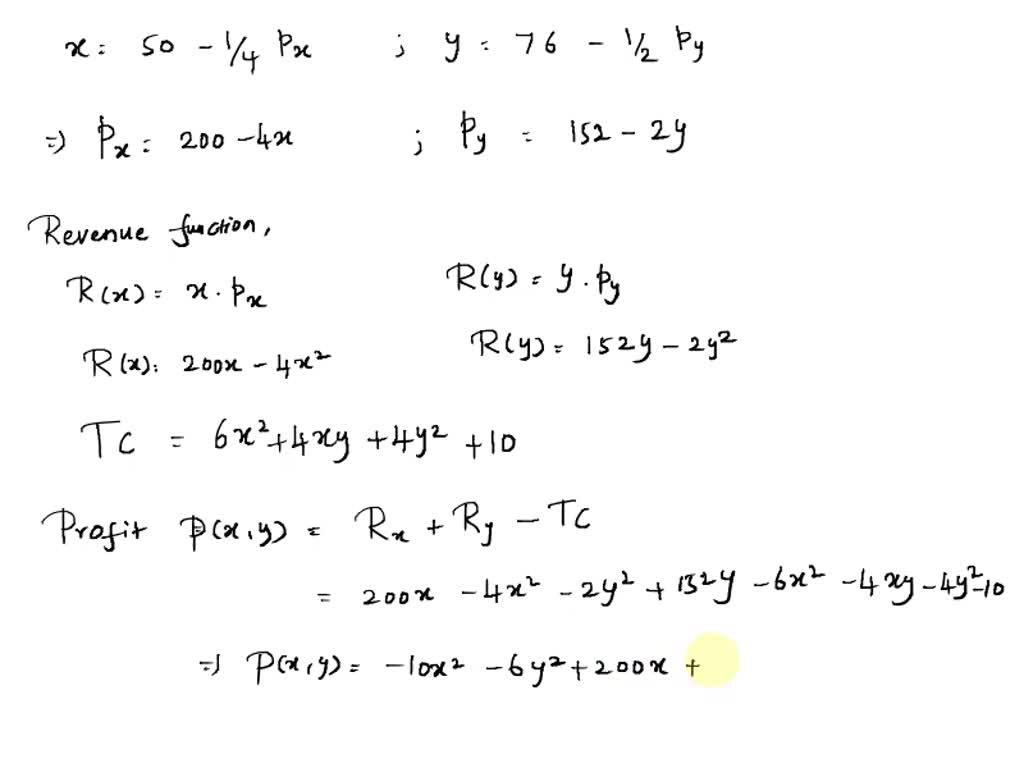 x = 50 - 1/4 Px ; y = 76 - 1/2 Py
=) Px = 200 - 4x ; Py = 152 - 2y
Revenue function,
R(x) = x . Px R(y) = y . Py
R(x): 200x - 4x² R(y) = 152y - 2y²
TC = 6x² + 4xy + 4y² + 10
Profit P(x,y) = Rx + Ry - TC
= 200x - 4x² - 2y² + 152y - 6x² - 4xy - 4y² - 10
=) P(x,y) = -10x² - 6y² + 200x +